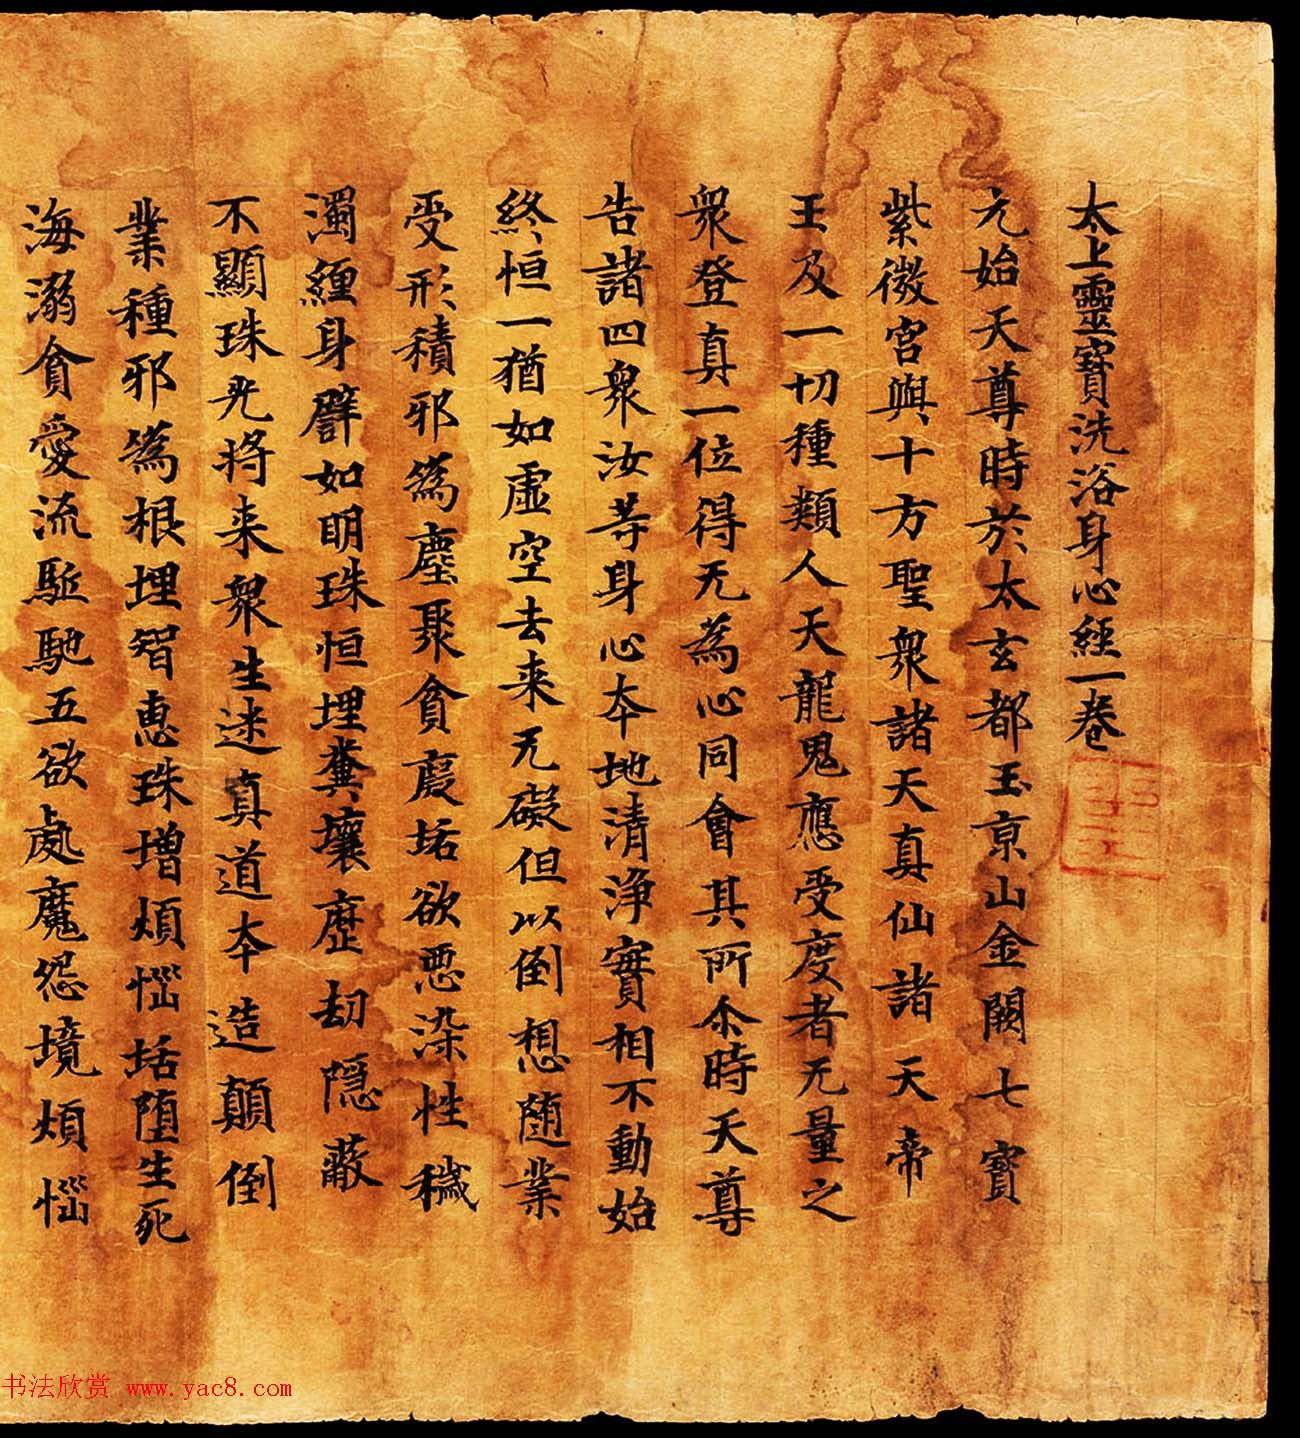 太上靈寶洗浴身心經一卷
元始天尊時於太玄都玉京山金闕七寶
紫微宮與十方聖衆諸天真仙諸天帝
王及一切種類人天龍鬼應受度者无量之
衆登真一位得无為心同會其所尒時天尊
告諸四衆汝等身心本地清淨實相不動始
終恒一猶如虛空去来无礙但以倒想随業
受形積邪為塵聚貪為垢欲惡染性穢
濁纏身譬如明珠恒埋糞壤歷劫隱蔽
不顯珠光將来衆生迷真道本造顛倒
業種邪為根埋智惠珠增煩惱垢墮生死
海溺貪愛流馳五欲處魔怨境煩惱
书法欣赏 www.yac8.com